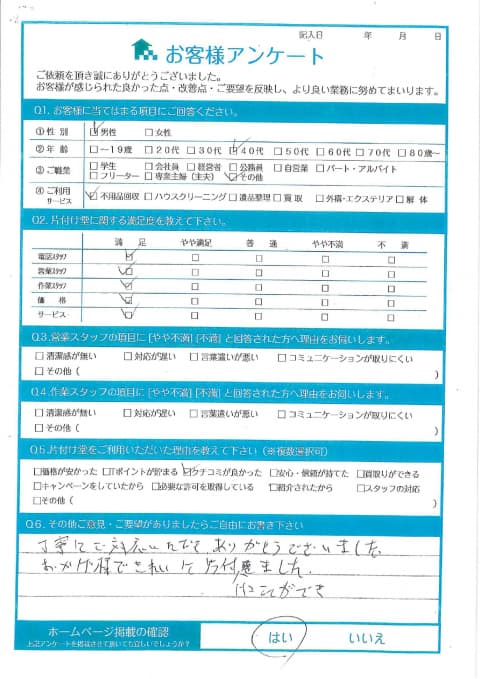 記入日　年　月　日
お客様アンケート
ご依頼を頂き誠にありがとうございました。
お客様が感じられた良かった点・改善点・ご要望を反映し、より良い業務に努めてまいります。
Q1. お客様に当てはまる項目にご回答ください。
①性 別 ☑男性 □女性
②年 齢 □～19歳 □20代 □30代 ☑40代 □50代 □60代 □70代 □80歳～
③ご職業 □学生 □会社員 □経営者 □公務員 □自営業 □パート・アルバイト
□フリーター □専業主婦（主夫） ☑その他
④ご利用サービス ☑不用品回収 □ハウスクリーニング □遺品整理 □買取 □外構・エクステリア □解体
Q2. 片付け堂に関する満足度を教えて下さい。
満足 やや満足 普通 やや不満 不満
電話スタッフ ☑ □ □ □ □
営業スタッフ ☑ □ □ □ □
作業スタッフ ☑ □ □ □ □
価格 ☑ □ □ □ □
サービス ☑ □ □ □ □
Q3. 営業スタッフの項目に [やや不満] [不満] と回答された方へ理由をお伺いします。
□清潔感が無い □対応が遅い □言葉遣いが悪い □コミュニケーションが取りにくい
□その他（　）
Q4. 作業スタッフの項目に [やや不満] [不満] と回答された方へ理由をお伺いします。
□清潔感が無い □対応が遅い □言葉遣いが悪い □コミュニケーションが取りにくい
□その他（　）
Q5. 片付け堂をご利用いただいた理由を教えて下さい（※複数選択可）
□価格が安かった □Tポイントが貯まる ☑クチコミが良かった □安心・信頼が持てた □買取りができる
□キャンペーンをしていたから □必要な許可を取得している □紹介されたから □スタッフの対応
□その他（　）
Q6. その他ご意見・ご要望がありましたらご自由にお書き下さい
丁寧にご対応いただき、ありがとうございました。
おかげ様できれいに片付
ことができ
ました。
ホームページ掲載の確認
上記アンケートを掲載させて頂いても宜しいでしょうか？
はい いいえ